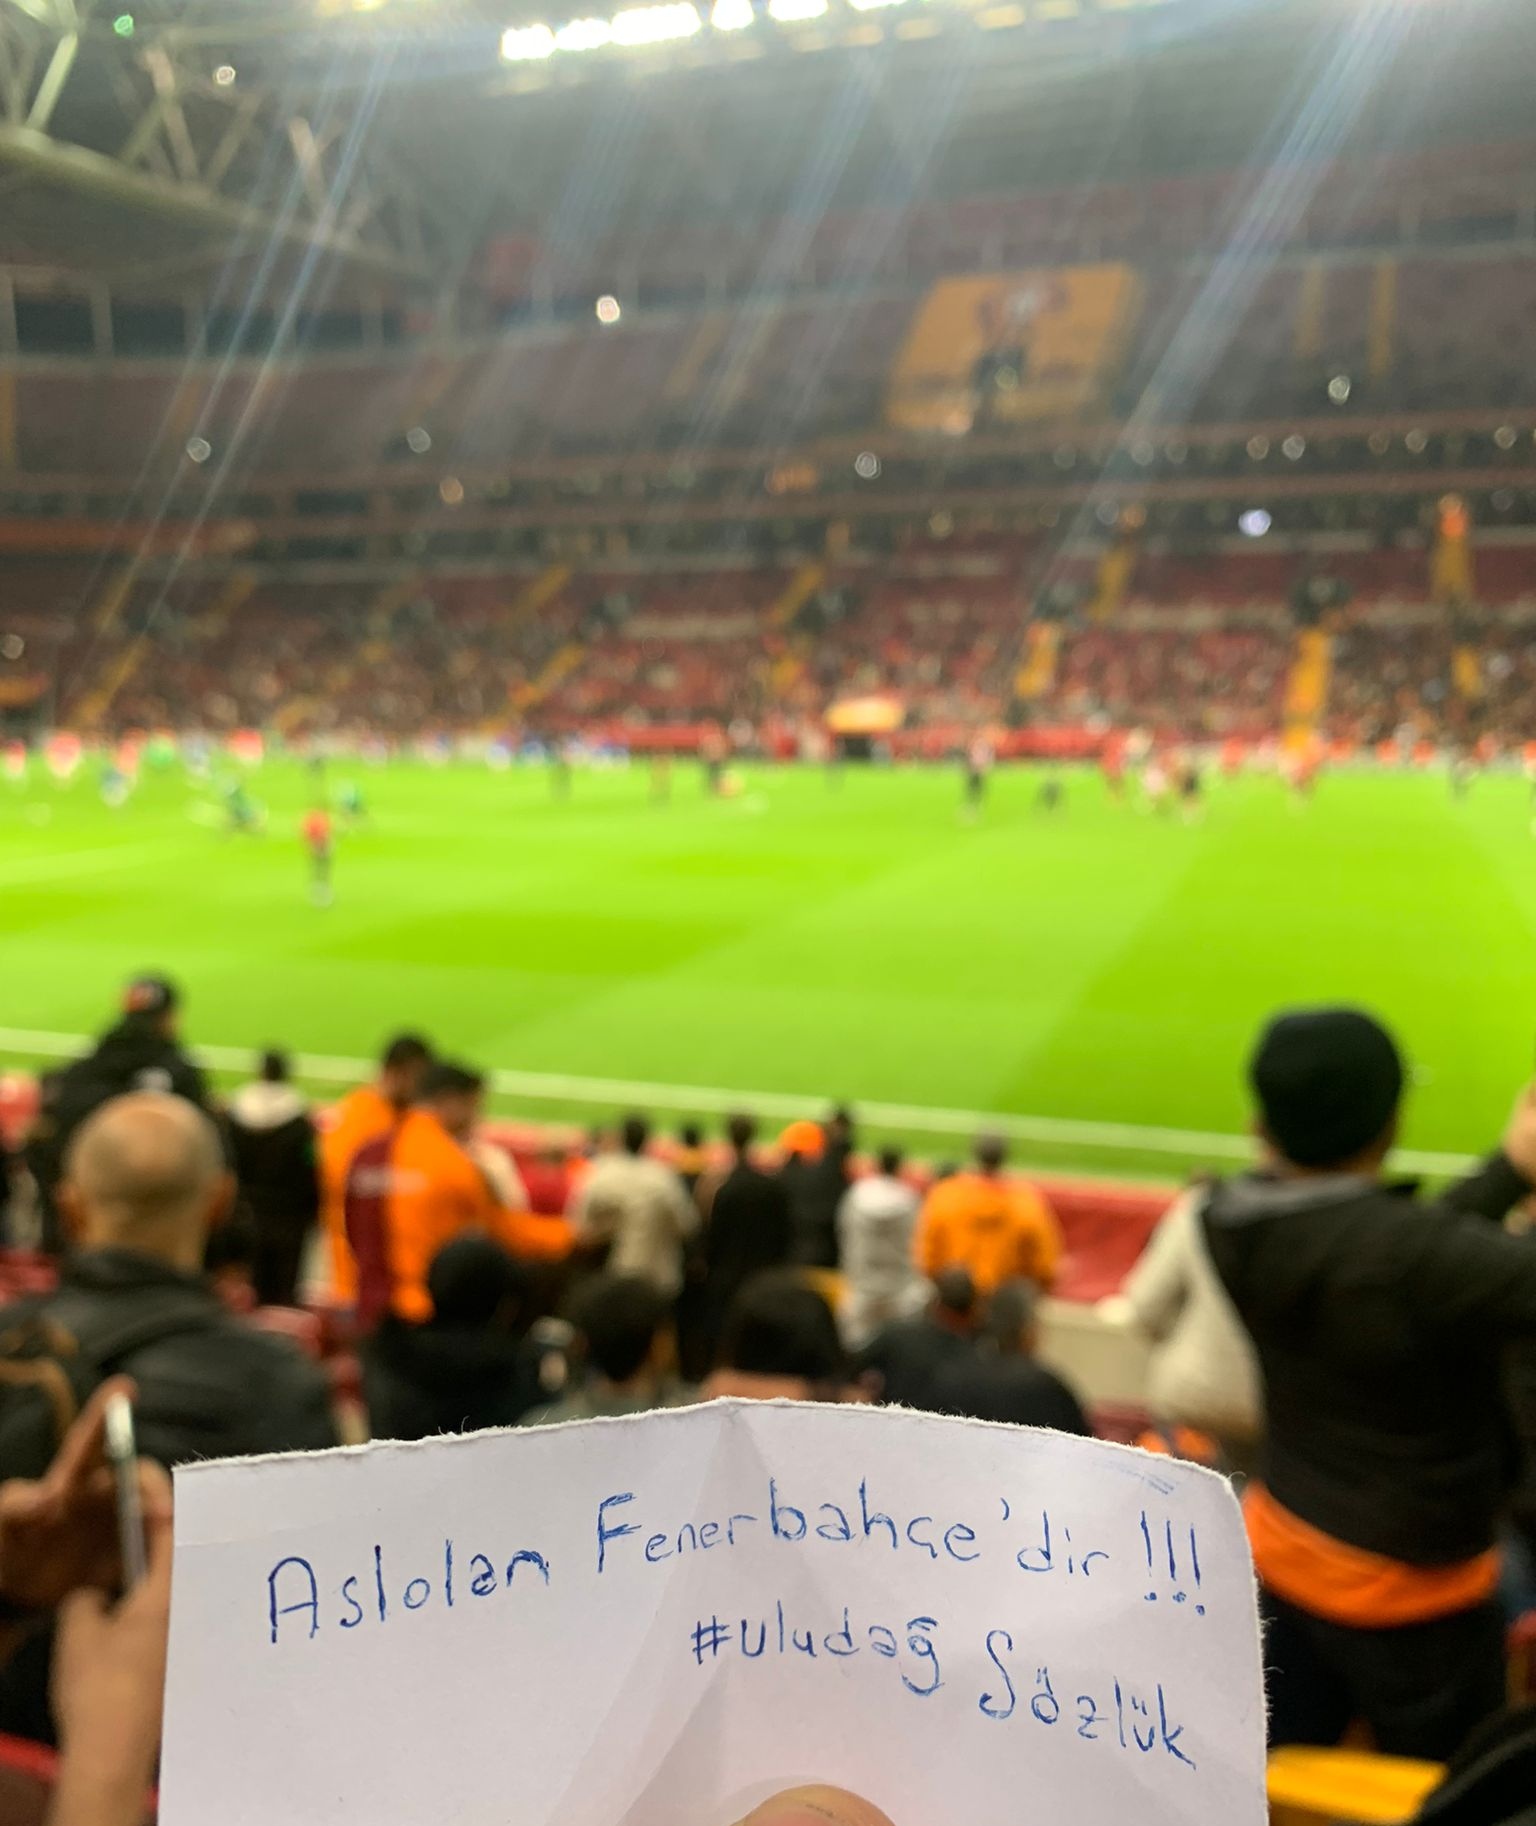 Aslolan Fenerbahçe'dir !!!
#uludağ Sözlük